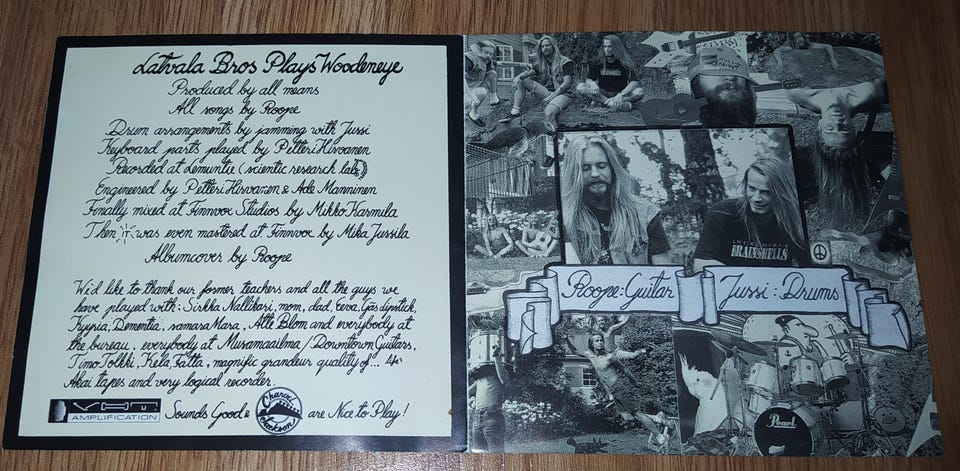 Latvala Bros Plays Woodeneye
Produced by all means
All songs by Roope
Drum arrangements by jamming with Jussi
Keyboard parts played by Petteri Hirvanen
Recorded at demuntie (scientic research lab)
Engineered by Petteri Hirvanen & Ade Manninen
Finally mixed at Finnvox Studios by Mikko Karmila
Then it was even mastered at Finnvox by Mika Jussila
Albumcover by Roope
We'd like to thank our former teachers and all the guys we
have played with: Sirkka Nallikari, mom, dad, Eeva, Gas dipstick,
Kypria, Dementia, samara Mara, Atte Blom and everybody at
the bureau, everybody at Musamaailma/Downtown Guitars,
Timo Tolkki, Kela, Fatta, magnific grandeur quality of... 4
Akai tapes and very logical recorder.
VHT
AMPLIFICATION
Sounds Good &
Charvel
Jackson
are Nice to Play!
INCREDIBLE
BRAINSHELLS
Roope: Guitar
Jussi: Drums
Pearl